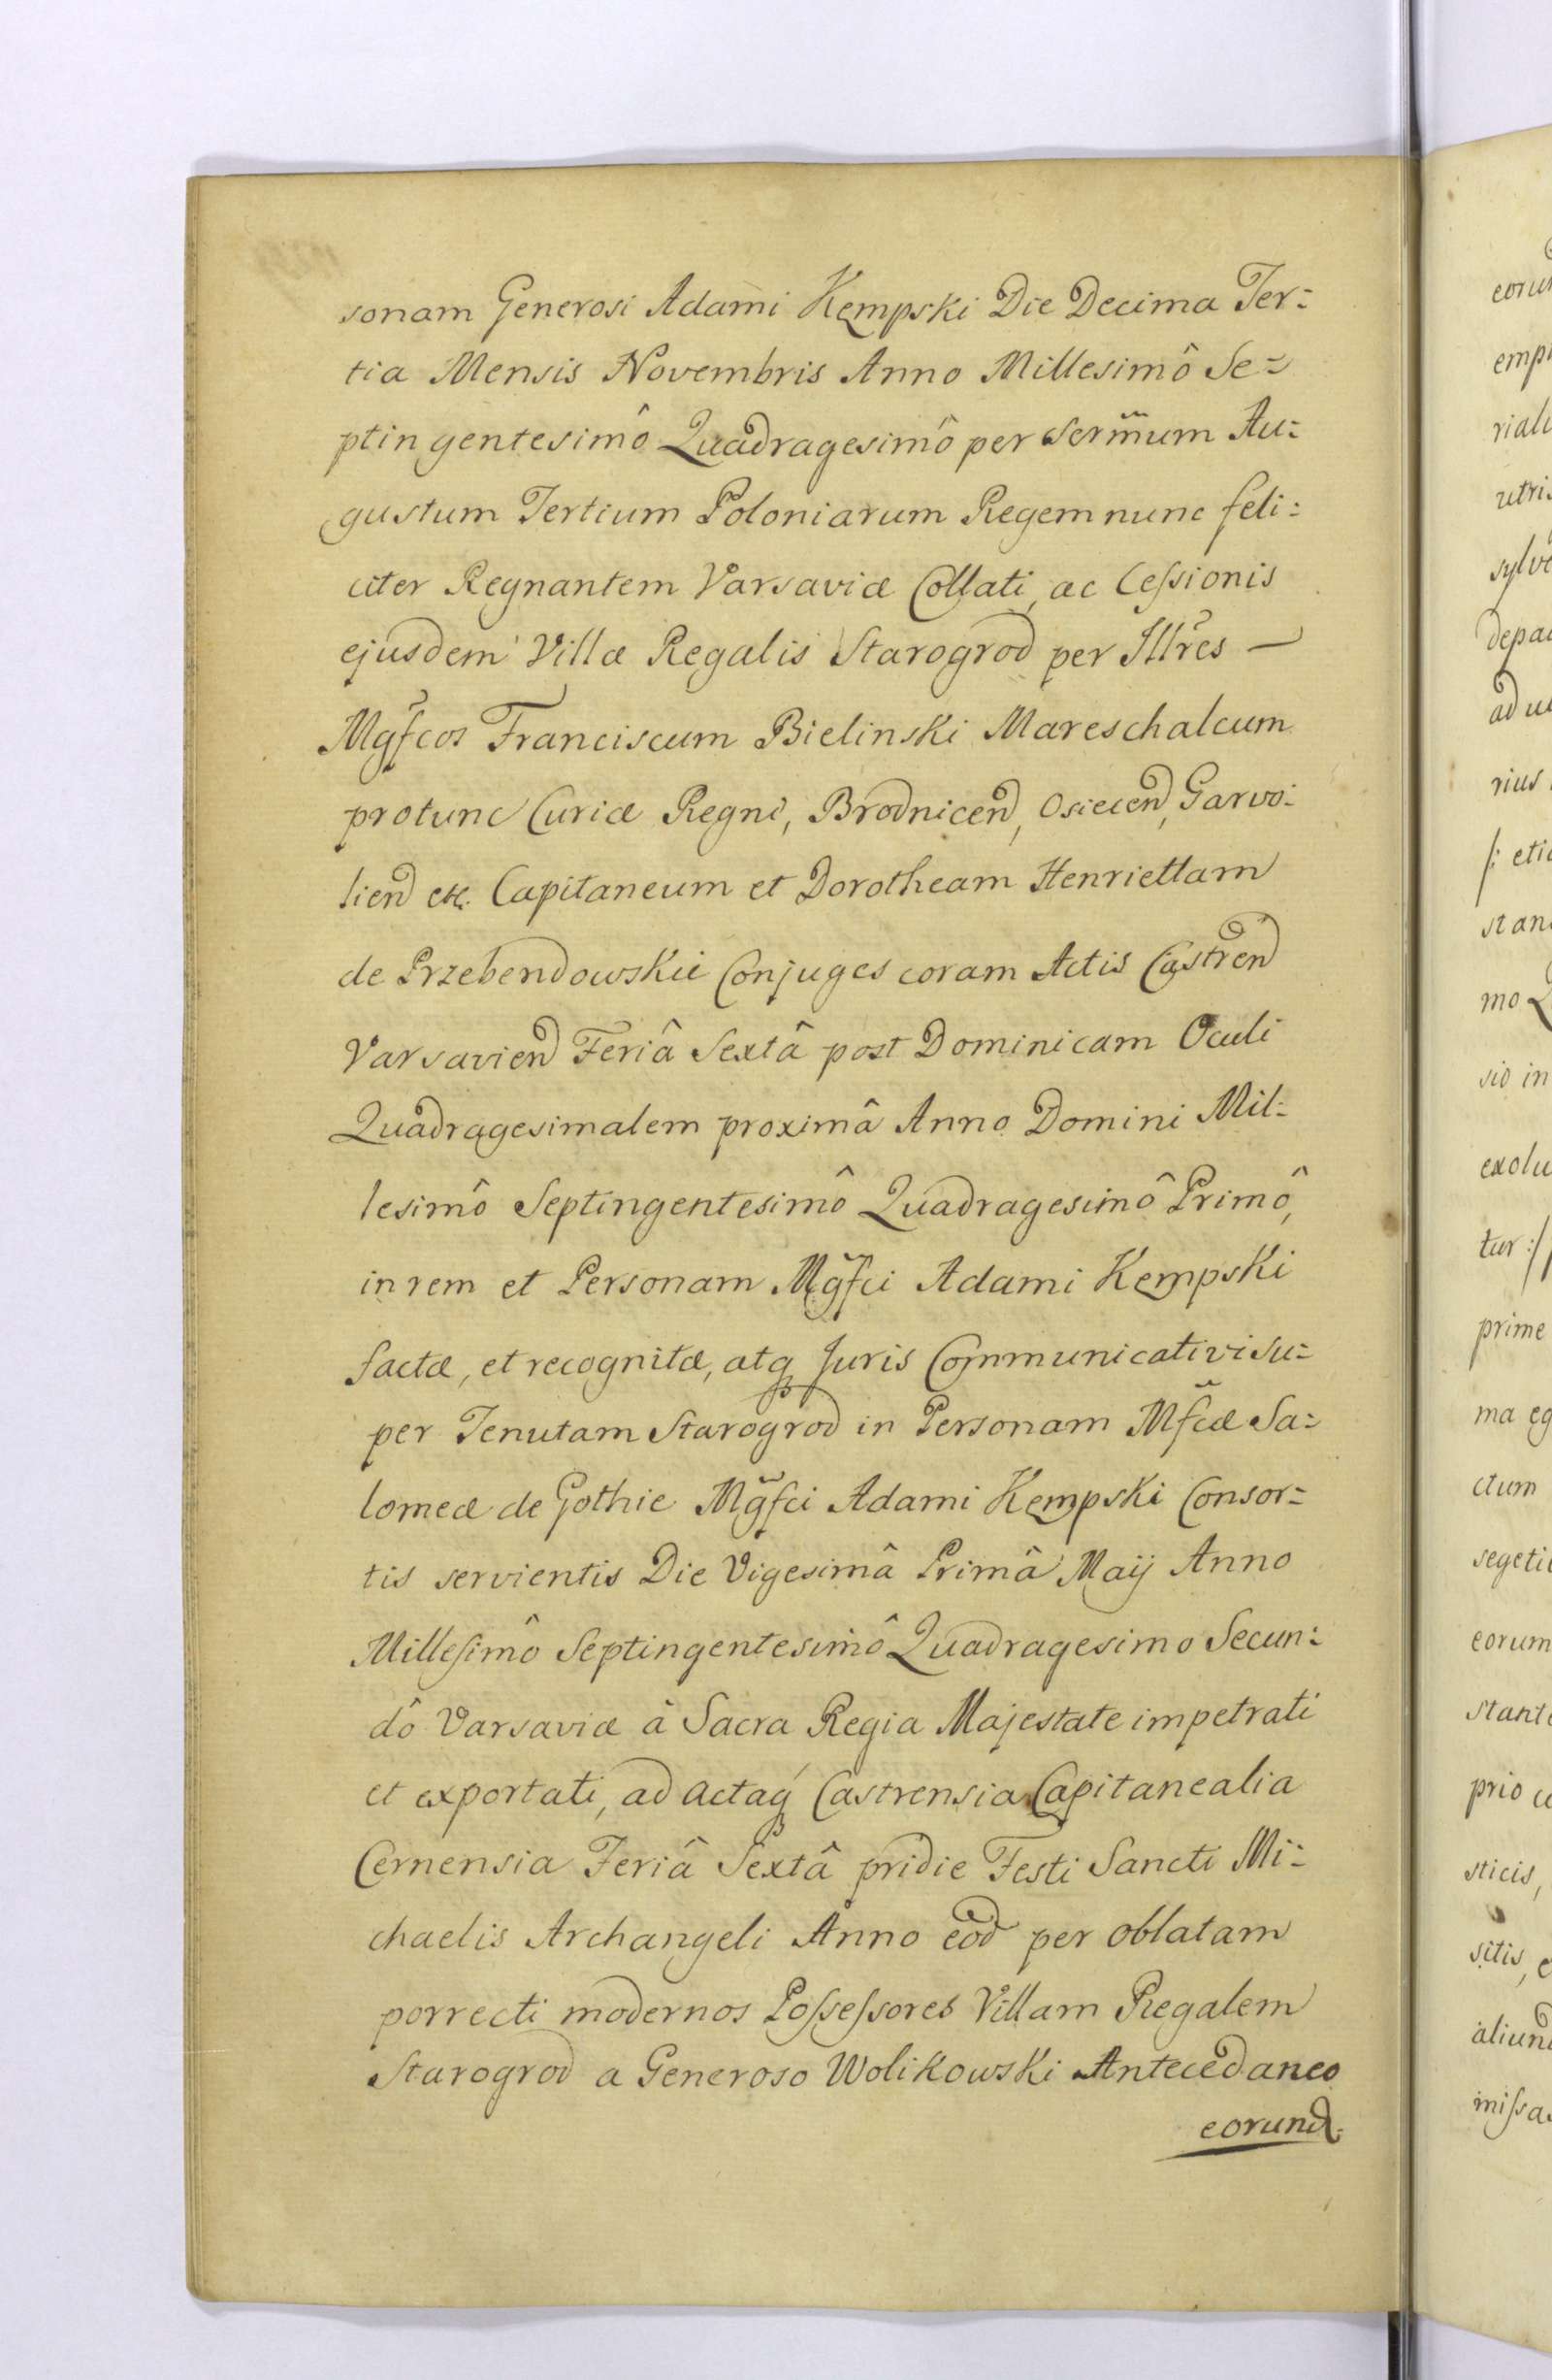 sonam Generosi Adami Kempski Die Decima Ter:
tia Mensis Novembris Anno Millesimô Se=
ptingentesimô Quadragesimô per Serm̃um Au:
gustum Tertium Poloniarum Regem nunc feli:
citer Regnantem Varsaviæ Collati, ac Cessionis
ejusdem Villæ Regalis Starogrod per Illr̃es —
Mgf̃cos Franciscum Bielinski Mareschalcum
protunc Curiæ Regni, Brodnicen̄, Osiecen̄, Garvo:
lien̄ etc. Capitaneum et Dorotheam Henriettam
de Przebendowskie Conjuges coram Actis Castren̄
Varsavien̄ Feriâ Sextâ post Dominicam Oculi
Quadragesimalem proximâ Anno Domini Mil:
lesimô Septingentesimô Quadragesimô Primô,
in rem et Personam Mgf̃ci Adami Kempski
factæ, et recognitæ, atq̃ Juris Communicativi su=
per Tenutam Starogrod in Personam Mf̃cæ Sa=
lomeæ de Gothie Mgf̃ci Adami Kempski Consor=
tis servientis Die Vigesimâ Primâ Maij Anno
Millesimô Septingentesimô Quadragesimo Secun:
dô Varsaviæ â Sacra Regia Majestate impetrati
et exportati, ad actaq́ Castrensia Capitanealia
Cernensia Feriâ Sextâ pridie Festi Sancti Mi=
chaelis Archangeli Anno eod̄ per oblatam
porrecti modernos Possessores Villam Regalem
Starogrod a Generoso Wolikowski Antecedaneo
eorund.
emp
riali
utris
sylve
ad u
rius
/: etia
stan
mo Q
sio in
exolu
tur :/
prime
ma eg
ctum
segeti
eorum
stante
prio
sticis,
sitis, e
aliund
missa